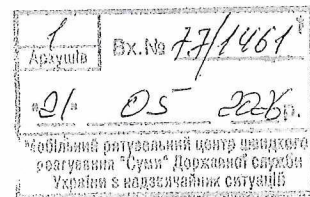 1
Аркушів
Вх.№ 77/1461
"21" 05 2026р.
Мобільний рятувальний центр швидкого
реагування "Суми" Державної служби
України з надзвичайних ситуацій